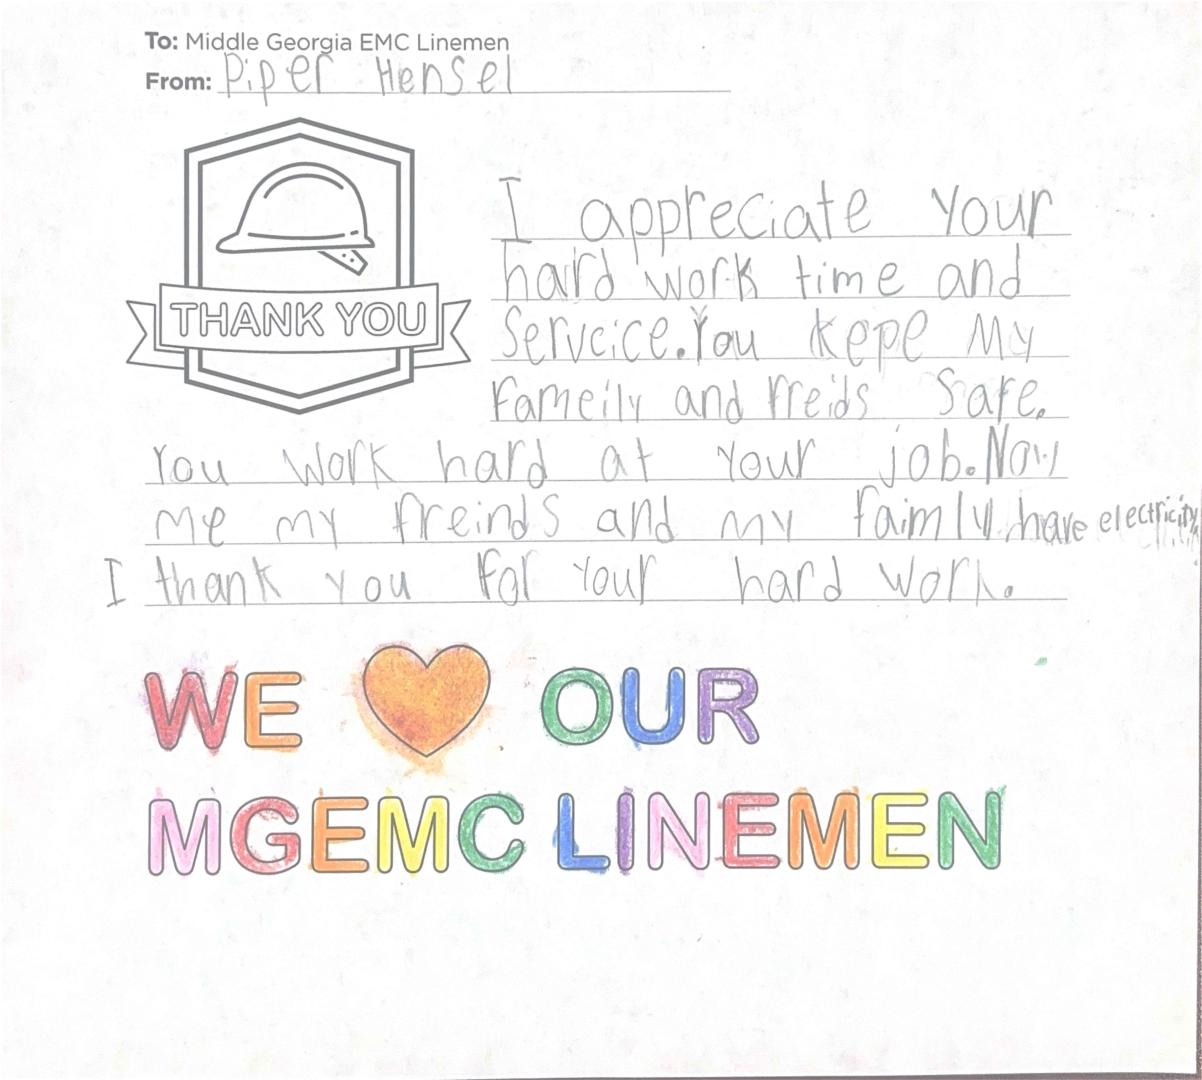 To: Middle Georgia EMC Linemen
From: Piper Hensel
THANK YOU
I appreciate Your
hard work time and
Serveice. You kepe My
Fameily and Freids Safe.
You work hard at Your job. Now
me my freinds and my faimly have electricity
I thank you For Your hard work.
WE OUR
MGEMC LINEMEN